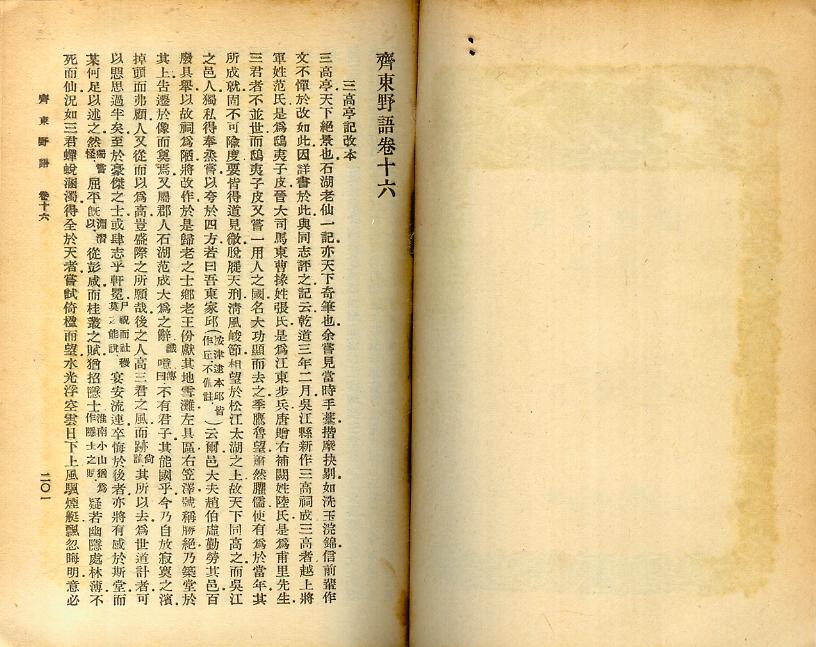 齊東野語卷十六
三高亭記改本
三高亭天下絕景也石湖老仙一記亦天下奇筆也余嘗見當時手藁揩摩抉剔如洗玉浣錦信前輩作
文不憚於改如此因詳書於此與同志評之記云乾道三年二月吳江縣新作三高祠成三高者越上將
軍姓范氏是爲鴟夷子皮晉大司馬東曹掾姓張氏是爲江東步兵唐贈右補闕姓陸氏是爲甫里先生
三君者不並世而鴟夷子皮又嘗一用人之國名大功顯而去之季鷹魯望蕭然臞儒使有爲於當年其
所成就固不可隃度要皆得道見微脫屣天刑清風峻節相望於松江太湖之上故天下同高之而吳江
之邑人獨私得奉烝嘗以夸於四方若曰吾東家邱(按津逮本邱皆作丘不備註)云爾邑大夫趙伯虛勤勞其邑百
廢具舉以故祠爲陋將改作於是歸老之士鄉老王份獻其地雪灘左具區右笠澤號稱勝絕乃築堂於
其上告遷於像而奠焉又屬郡人石湖范成大爲之辭識噫傳曰不有君子其能國乎今乃自放寂寞之濱
掉頭而弗顧人又從而以爲高豈盛際之所願哉後之人高三君之風而跡尙其所以去爲世道計者可
以懼思過半矣至於豪傑之士或肆志乎軒冕尸祝而社稷莫之能說宴安流連卒悔於後者亦將有感於斯堂而
某何足以述之然獨嘗怪屈平旣以淵潛從彭咸而桂叢之賦猶招隱士淮南小山猶爲作隱士之賦疑若幽隱處林薄不
死而仙況如三君蟬蛻溷濁得全於天者嘗試倚楹而望水光浮空雲日下上風颿煙艇飄忽晦明意必
齊東野語 卷十六 二〇一